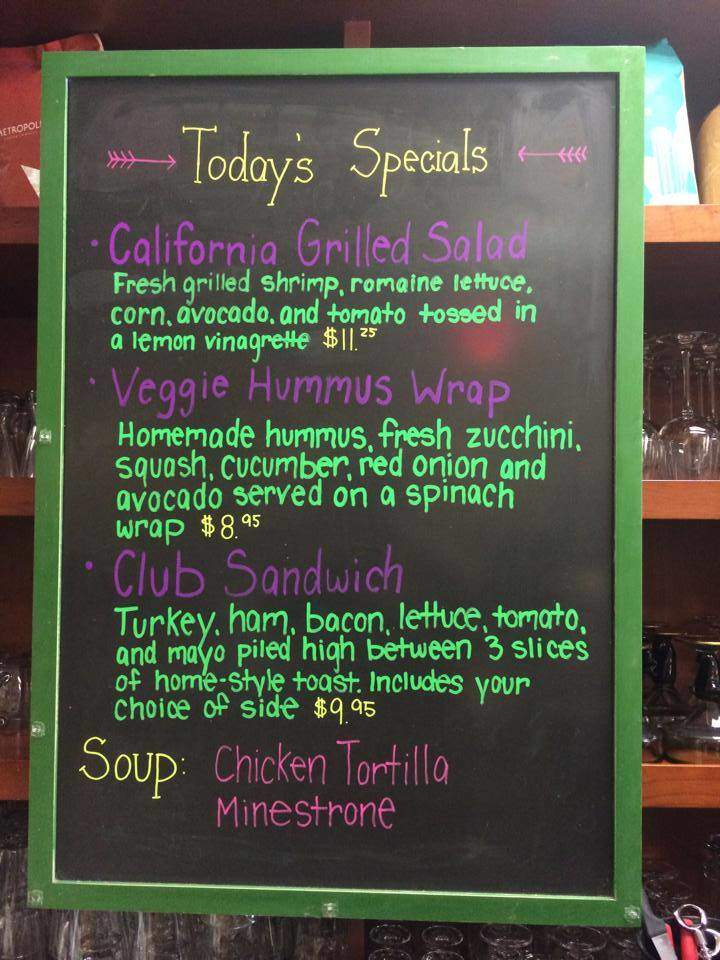 Today's Specials
• California Grilled Salad
Fresh grilled shrimp, romaine lettuce,
corn, avocado, and tomato tossed in
a lemon vinagrette $11.25
• Veggie Hummus Wrap
Homemade hummus, fresh zucchini,
squash, cucumber, red onion and
avocado served on a spinach
wrap $8.95
• Club Sandwich
Turkey, ham, bacon, lettuce, tomato,
and mayo piled high between 3 slices
of home-style toast. Includes your
choice of side $9.95
Soup: Chicken Tortilla
Minestrone